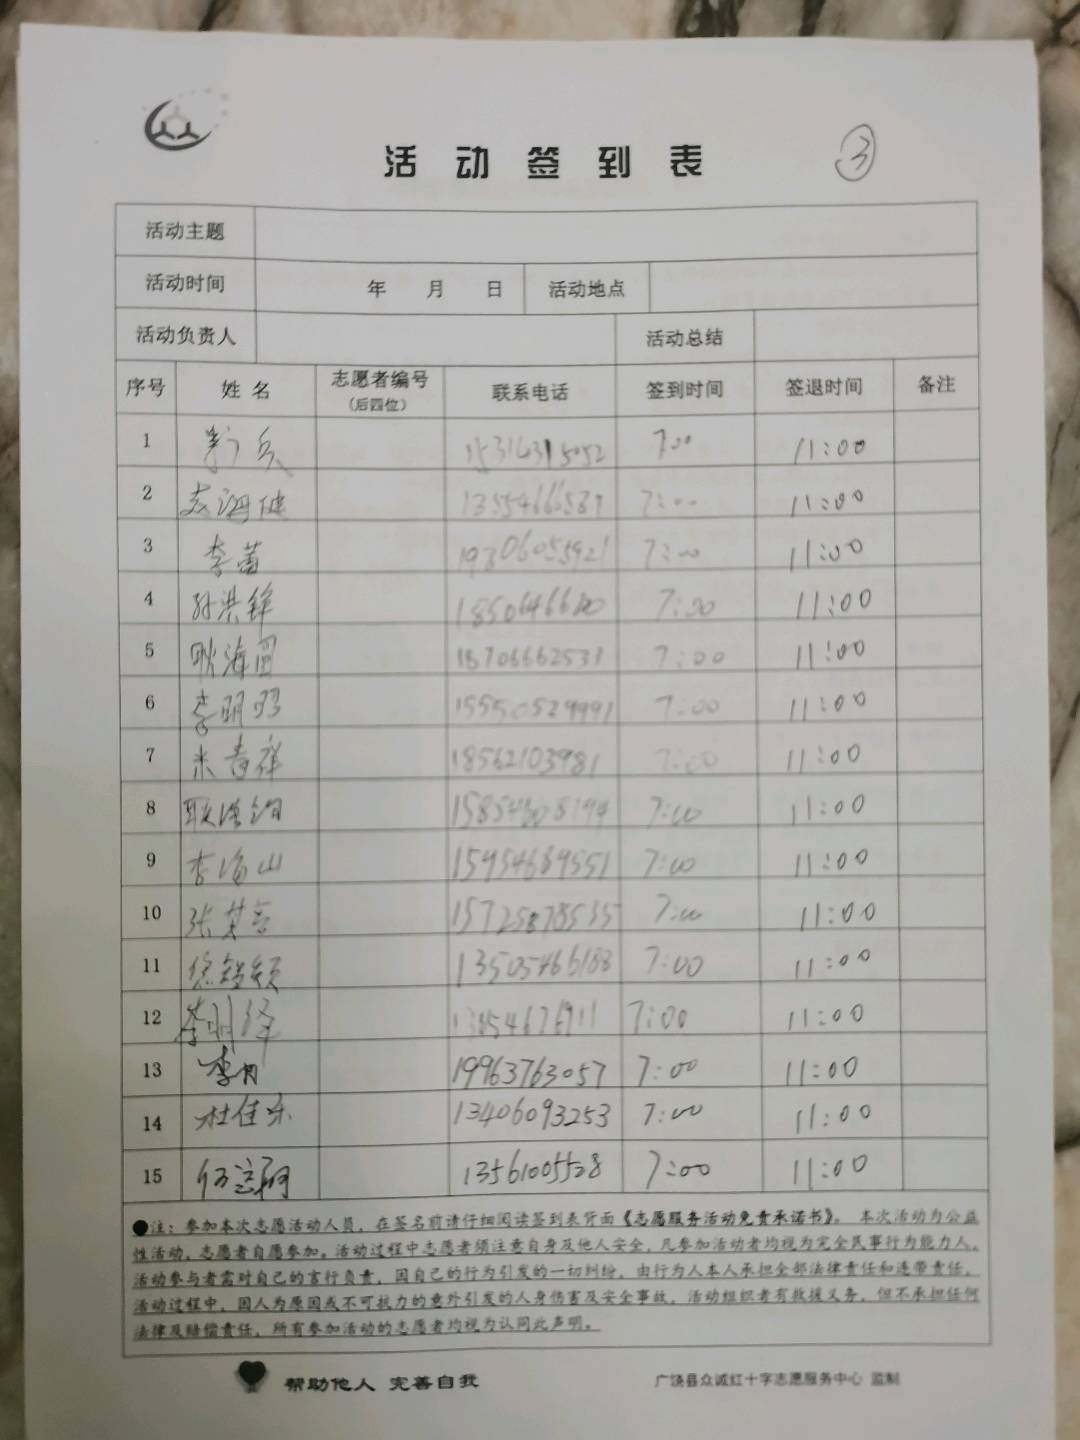 活动签到表 ③
活动主题
活动时间 年 月 日 活动地点
活动负责人 活动总结
序号 姓名 志愿者编号（后四位） 联系电话 签到时间 签退时间 备注
1 7:00 11:00
2 7:00 11:00
3 李蕾 7:00 11:00
4 孙洪锋 7:00 11:00
5 耿海 18706662533 7:00 11:00
6 李明 15550529991 7:00 11:00
7 18562103981 7:00 11:00
8 7:00 11:00
9 李海山 15954689551 7:00 11:00
10 张 15725878535 7:00 11:00
11 13505466188 7:00 11:00
12 李明 7:00 11:00
13 李月 19963763057 7:00 11:00
14 杜佳乐 13406093253 7:00 11:00
15 13561005528 7:00 11:00
●注：参加本次志愿活动人员，在签名前请仔细阅读签到表背面《志愿服务活动免责承诺书》。本次活动为公益
性活动，志愿者自愿参加。活动过程中志愿者须注意自身及他人安全，凡参加活动者均视为完全民事行为能力人，
活动参与者需对自己的言行负责，因自己的行为引发的一切纠纷，由行为人本人承担全部法律责任和连带责任。
活动过程中，因人为原因或不可抗力的意外引发的人身伤害及安全事故，活动组织者有救援义务，但不承担任何
法律及赔偿责任，所有参加活动的志愿者均视为认同此声明。
帮助他人 完善自我 广饶县众诚红十字志愿服务中心 监制